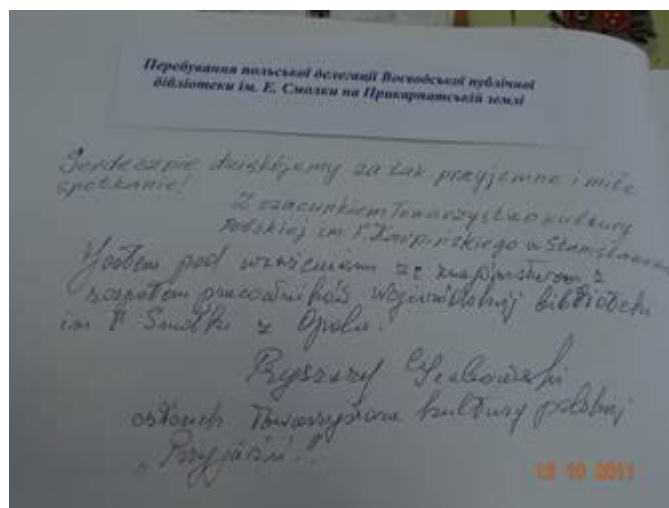 Перебування польської делегації Воєводської публічної
бібліотеки ім. Е. Смолки на Прикарпатській землі
Serdecznie dziękujemy za tak przyjemne i miłe
spotkanie!
Z szacunkiem Towarzystwo kultury
Polskiej im. F. Karpińskiego w
Jestem pod wrażeniem ze z
zespołem pracowników wojewódzkiej biblioteki
im Smolki z Opola.
Ryszard
członek Towarzystwa kultury polskiej
„Przyjaźń".
13 10 2011